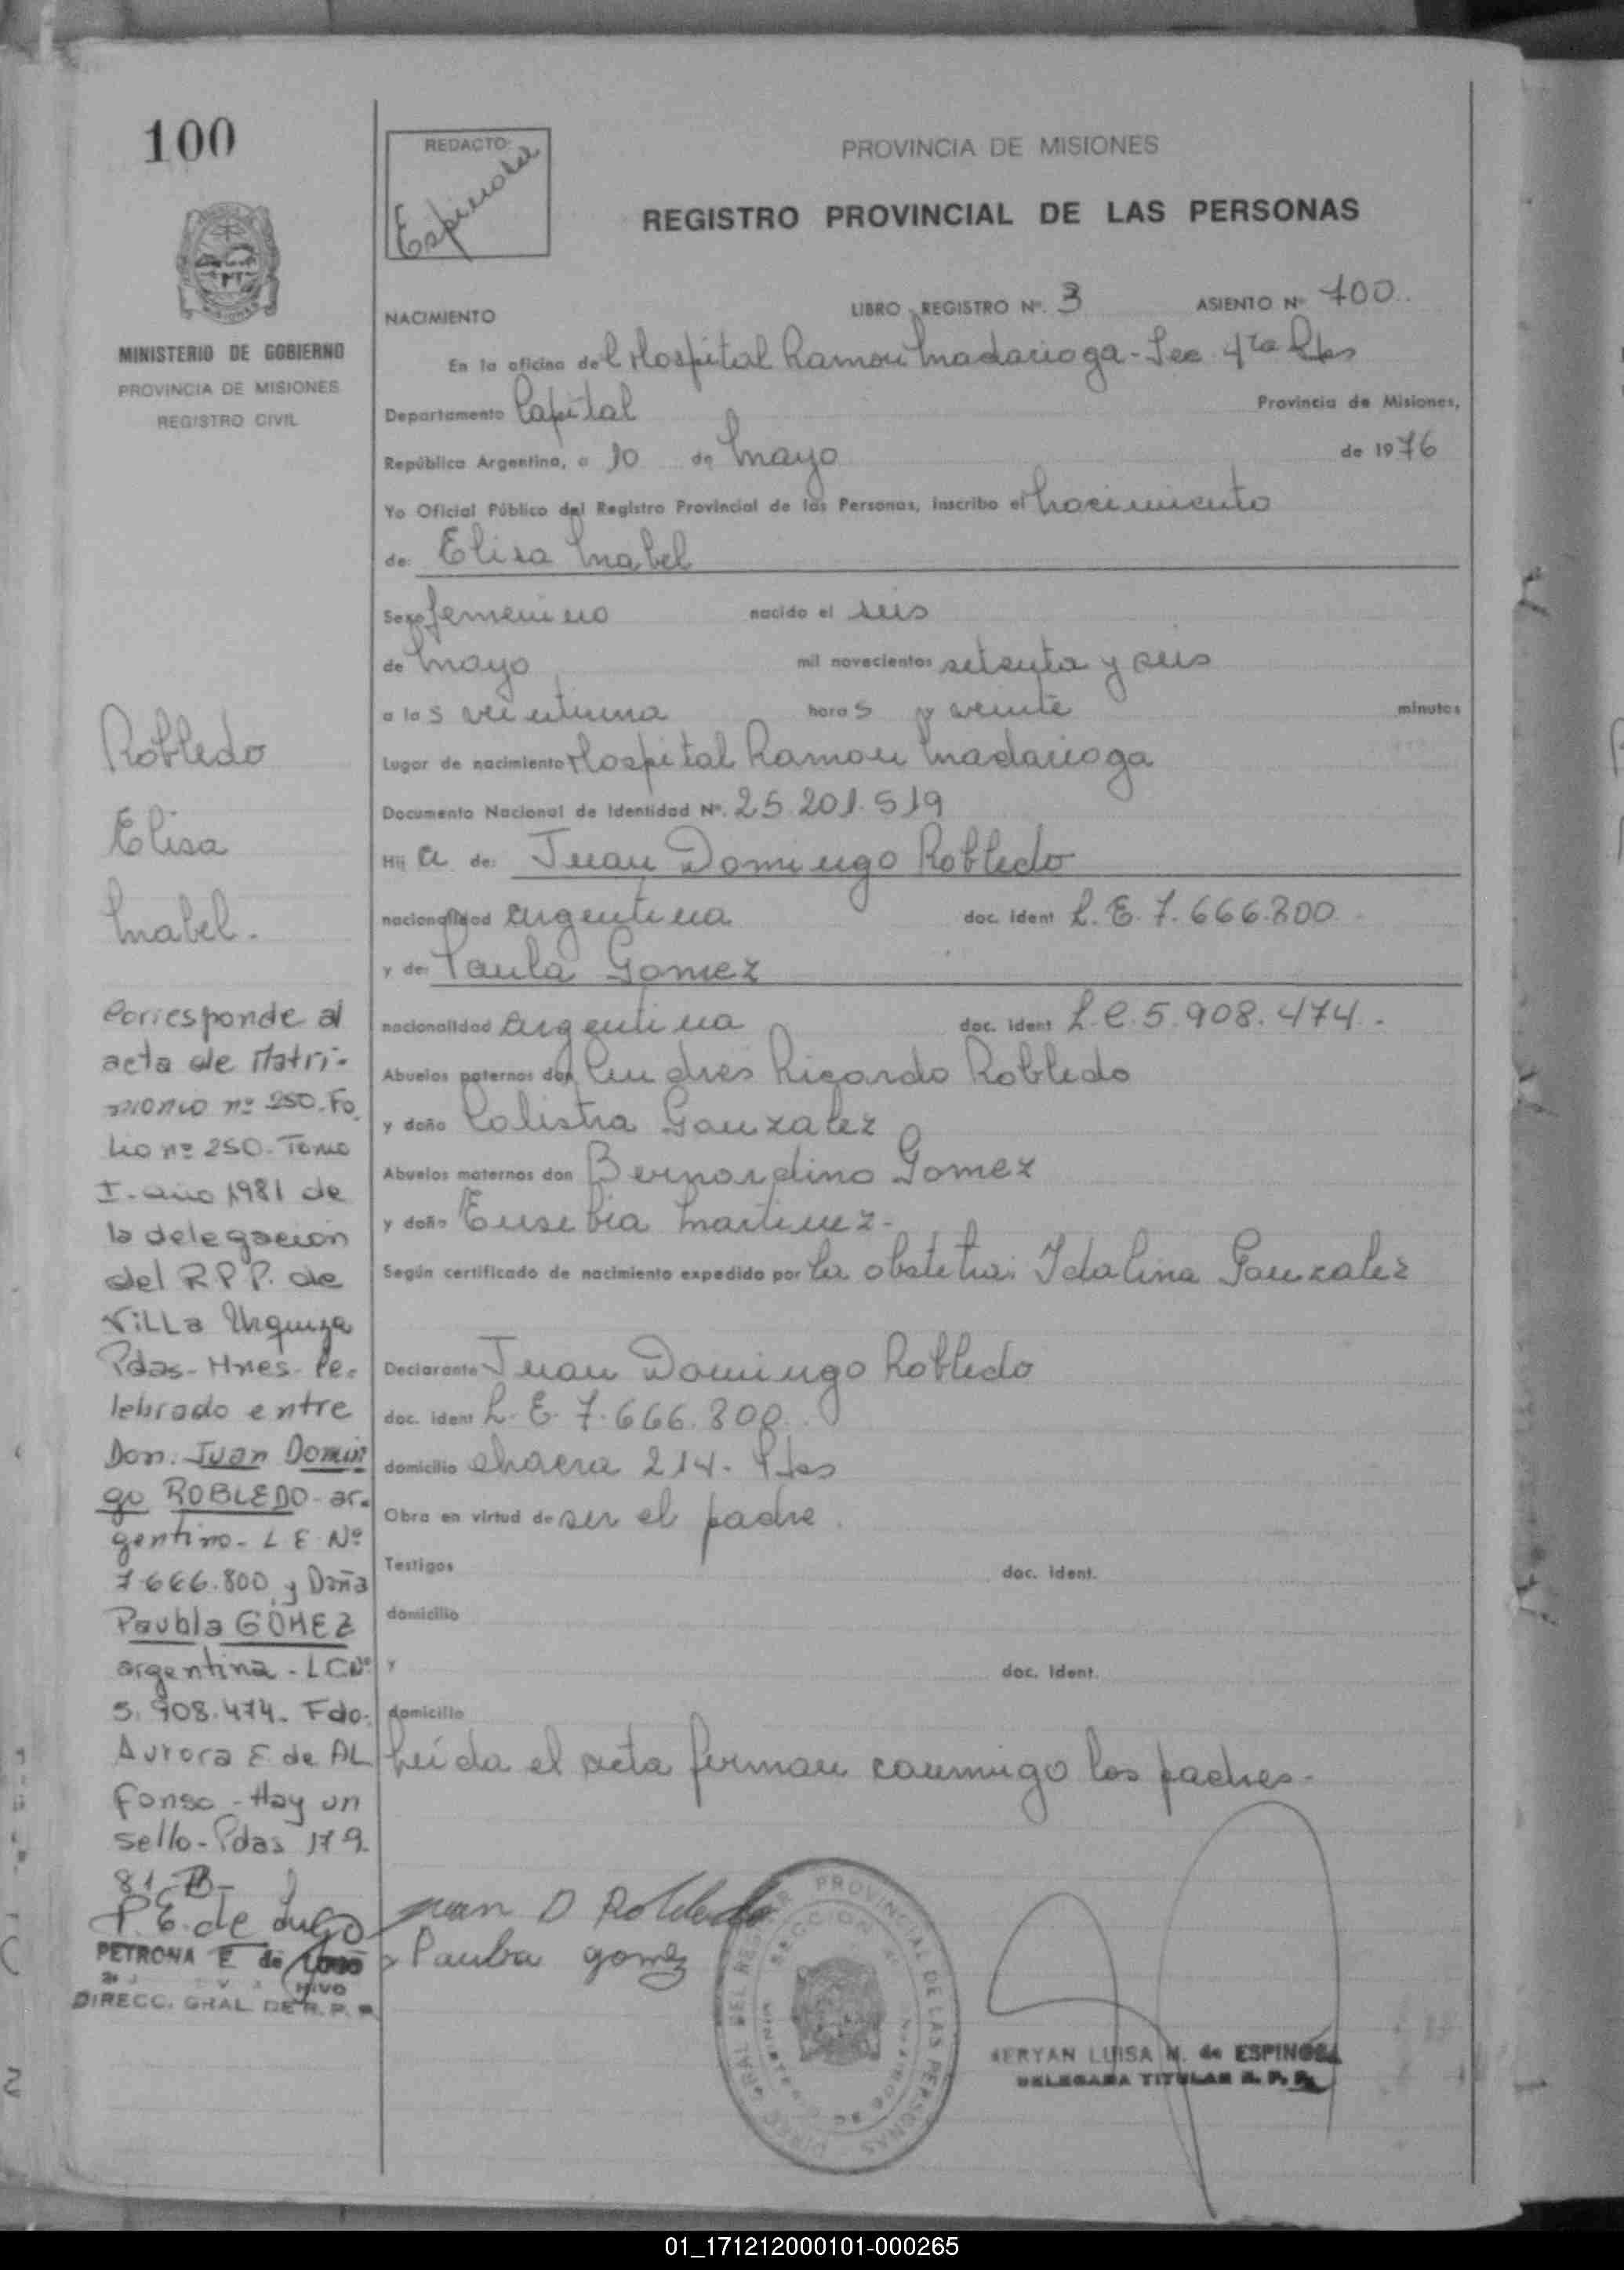 100
REDACTO
Espinosa
PROVINCIA DE MISIONES
REGISTRO PROVINCIAL DE LAS PERSONAS
MINISTERIO DE GOBIERNO
PROVINCIA DE MISIONES
REGISTRO CIVIL
NACIMIENTO LIBRO REGISTRO Nº. 3 ASIENTO Nº 400.
En la oficina del Hospital Ramon Madariaga - Sec 4ta Pdas
Departamento Capital Provincia de Misiones,
República Argentina, a 10 de Mayo de 1976
Yo Oficial Público del Registro Provincial de las Personas, inscribo el Nacimiento
de: Elisa Mabel
Sexo femenino nacido el seis
de Mayo mil novecientos setenta y seis
a las veintiuna horas y veinte minutos
Lugar de nacimiento Hospital Ramon Madariaga
Documento Nacional de Identidad Nº. 25.201.519
Hija de: Juan Domingo Robledo
nacionalidad argentina doc. ident L.E. 7.666.800
y de: Paula Gomez
nacionalidad argentina doc. ident L.C. 5.908.474.-
Abuelos paternos don Andres Ricardo Robledo
y doña Calistra Gonzalez
Abuelos maternos don Bernardino Gomez
y doña Eusebia Martinez-
Según certificado de nacimiento expedido por la obstetra: Idalina Gonzalez
Declarante Juan Domingo Robledo
doc. ident L.E. 7.666.800.
domicilio chacra 214. Pdas
Obra en virtud de ser el padre.
Testigos doc. ident.
domicilio
y doc. ident.
domicilio
Leída el acta firman conmigo los padres.-
Robledo
Elisa
Mabel.
Corresponde al
acta de Matri-
monio nº 250. Fo
lio nº 250. Tomo
I. año 1981 de
la delegación
del R.P.P. de
Villa Urquiza
Pdas-Mnes-Ce-
lebrado entre
Don: Juan Domin
go ROBLEDO-ar-
gentino- L E Nº
7.666.800 y Doña
Paubla GOMEZ
argentina - L C Nº
5.908.474. Fdo:
Aurora E de AL
fonso - Hay un
sello - Pdas 17 9
81.
P. E. de Lugo
PETRONA E de LUGO
DIRECC. GRAL DE R. P. P.
Juan D Robledo
Paubla gomez
PROVINCIAL DE LAS PERSONAS
LUISA M. de ESPINOSA
DELEGADA TITULAR R. P. P.
01_171212000101-000265